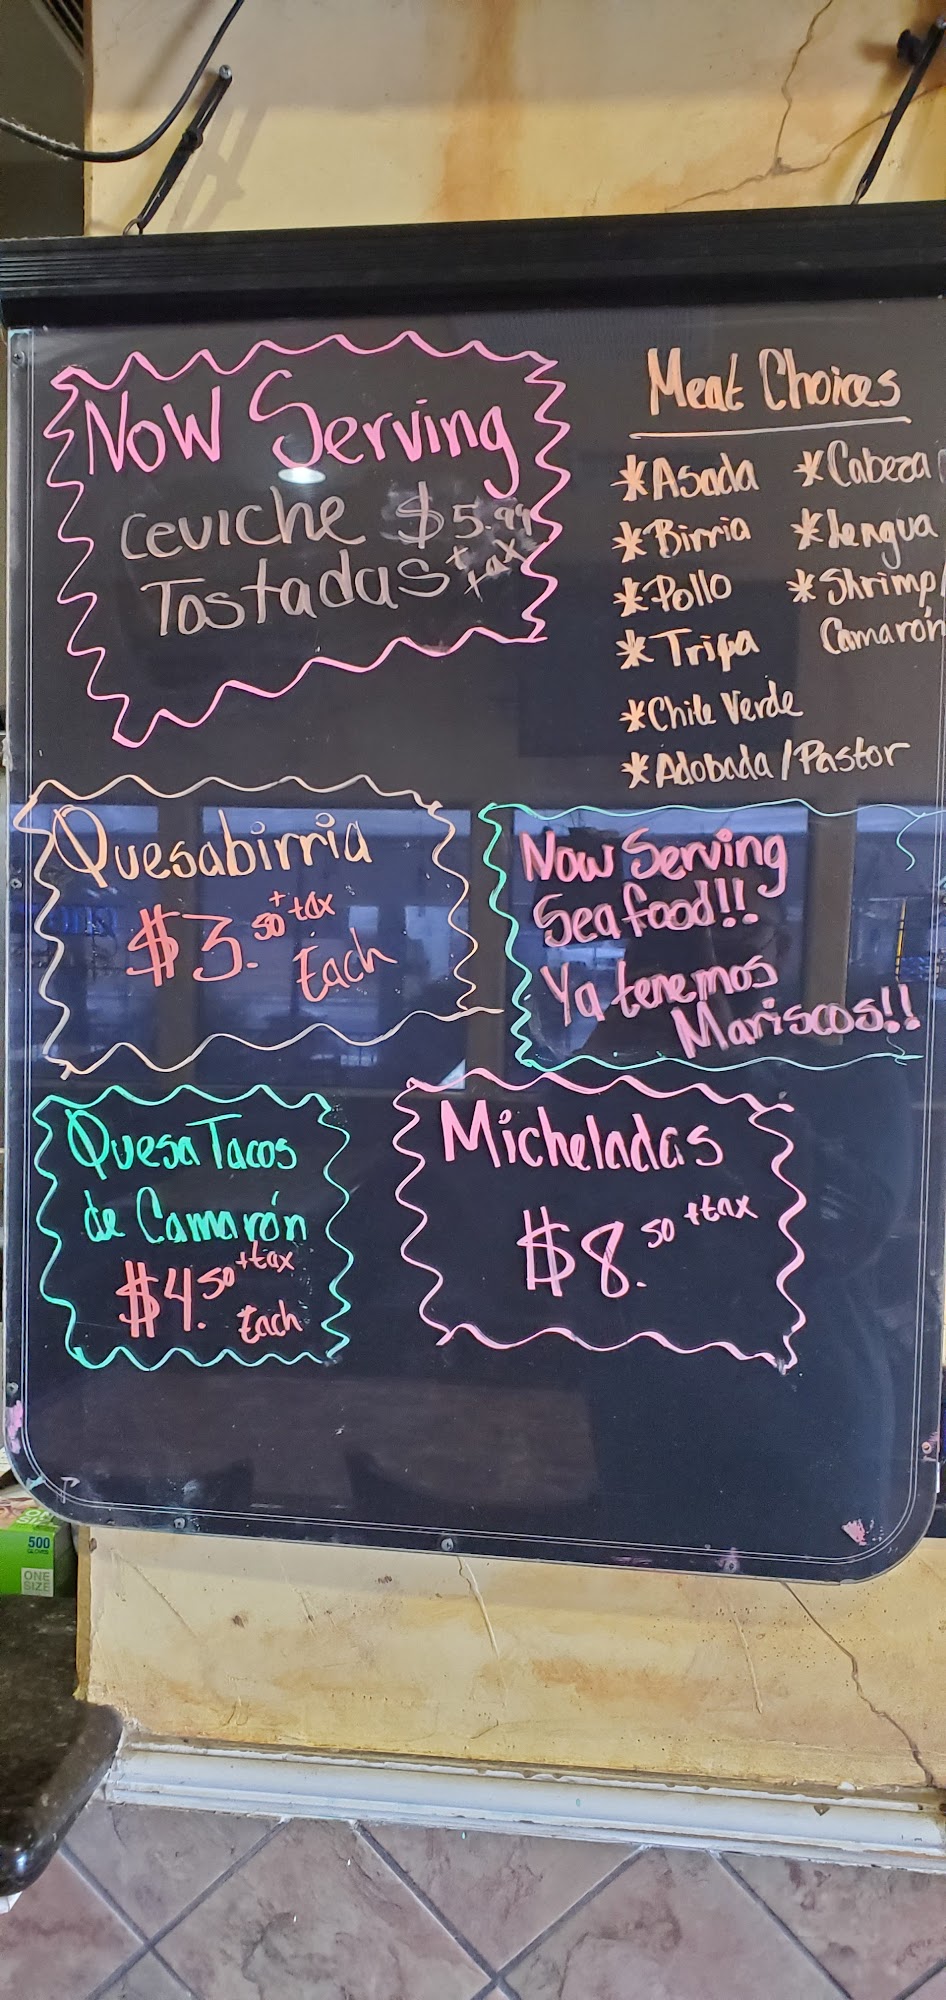 Now Serving
Ceviche $5.99
Tostadas + tax
Meat Choices
*Asada
*Birria
*Pollo
*Tripa
*Chile Verde
*Adobada/Pastor
*Cabeza
*Lengua
*Shrimp/
Camarón
Quesabirria
$3.50 + tax
Each
Now Serving
Seafood!!
Ya tenemos
Mariscos!!
Quesa Tacos
de Camarón
$4.50 + tax
Each
Micheladas
$8.50 + tax
500
GLOVES
ONE
SIZE